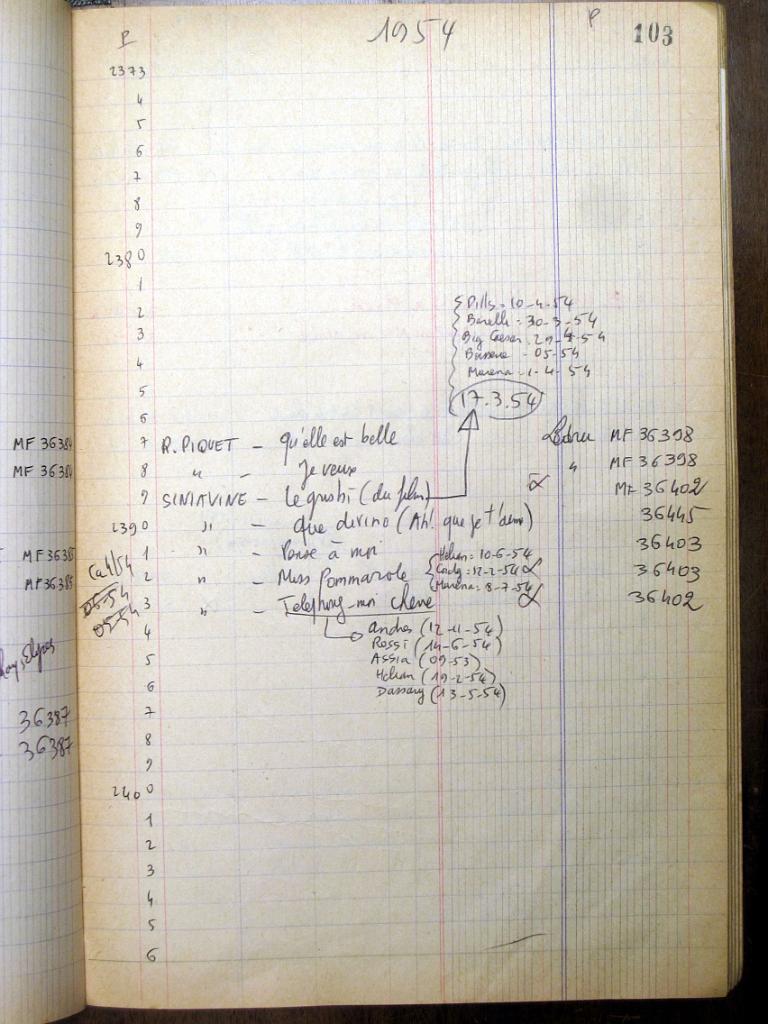 P 1954 P 103
2373
4
5
6
7
8
9
2380
1
2
3
4
5
6
Pills: 10-4-54
30-3-54
Big
05-54
Marena: 1-4-54
17.3.54
MF 36384 7 R. PIQUET - qu'elle est belle Ledru MF 36398
MF 36384 8 " - Je veux " MF 36398
9 SINIAVINE - Le grisbi (du film) α MF 36402
2390 " - que divino (Ah! que je t'aime) 36445
MF 36385 1 " - Pense à moi 36403
MF 36385 Ca 4/54 2 " - Miss Pommarole 36403
Helian: 10-6-54
12-2-54 α
Marena: 8-7-54
05-54 3 " - Telephone-moi chérie α 36402
05-54
4
Andrex (12-11-54)
Rossi (14-6-54)
5 Assia (09-53)
Helian (19-2-54)
6 Dassary (13-5-54)
36387 7
36387 8
9
2400
1
2
3
4
5
6